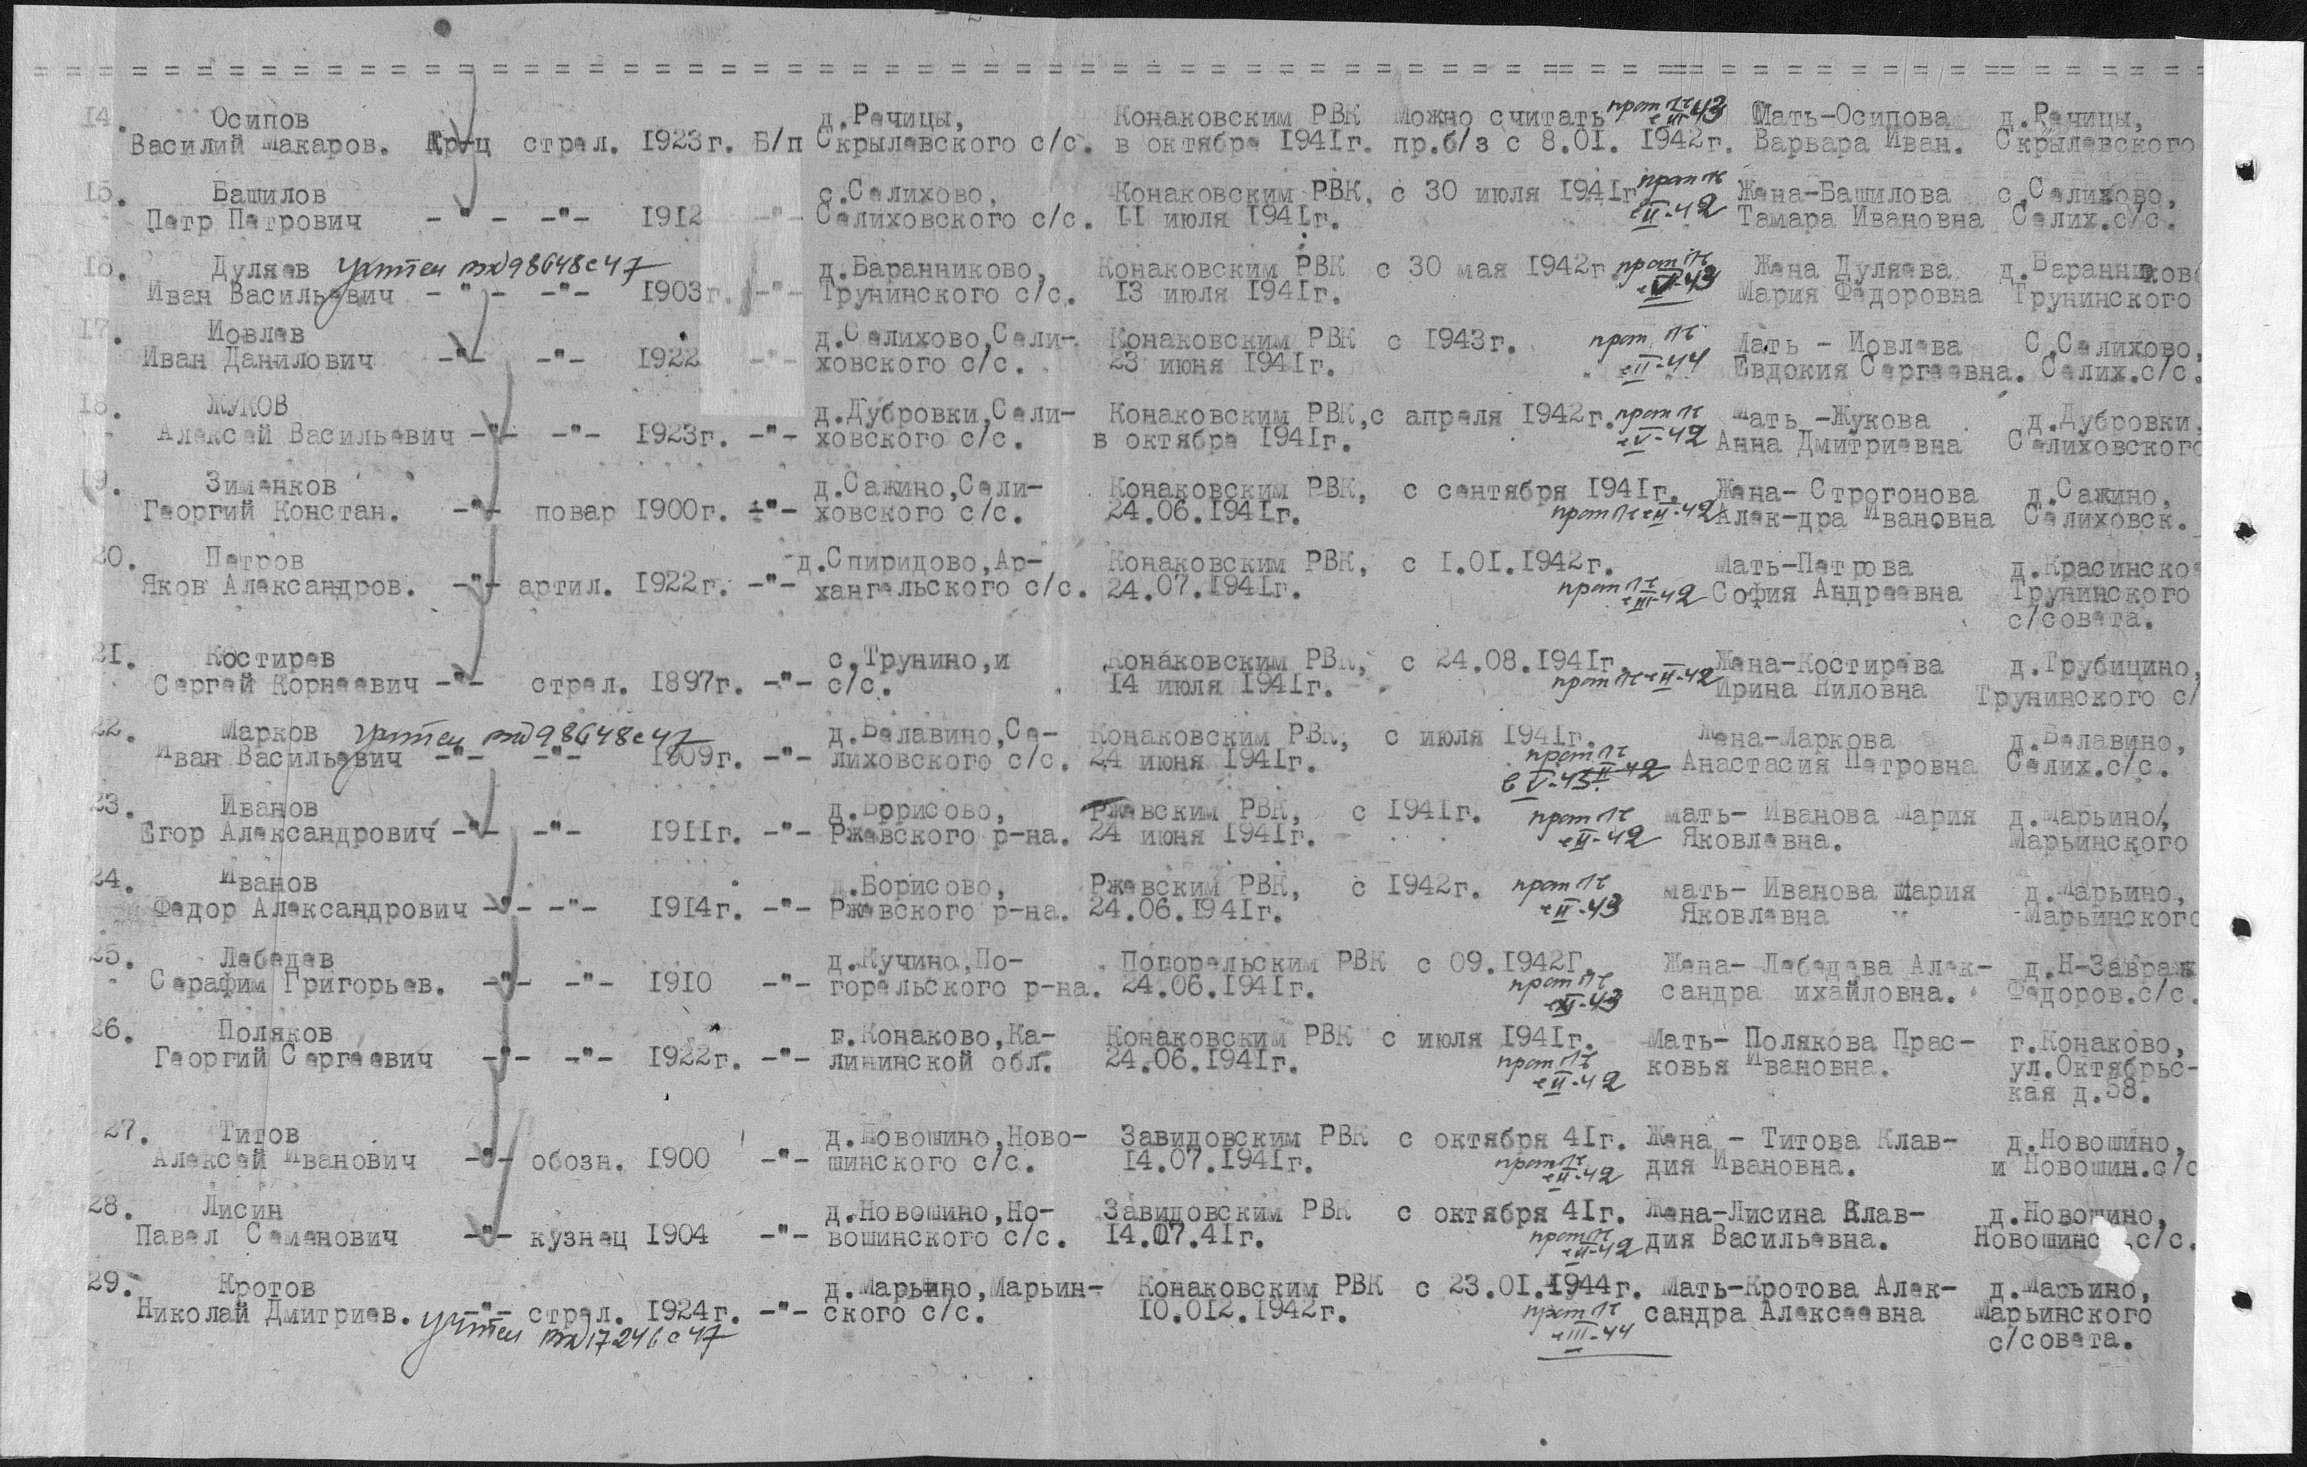 = = = = = = = = = = = = = = = = = = = = = = = = = = = = = = = = = = = = = = = = = = = = = = = = = = = = = = = = = = = = = = = = = =
14. Осипов д.Речицы, Конаковским РВК Можно считать проп б/в Мать-Осипова д.Речицы,
Василий Макаров. Кр-ц стрел. 1923г. Б/п Скрылевского с/с. в октябре 1941г. пр.б/з с 8.01. 1942г. III-43 Варвара Иван. Скрылевского
15. Башилов с.Селихово, Конаковским РВК, с 30 июля 1941г проп б/в Жена-Башилова с.Селихово,
Петр Петрович -"- -"- 1912 -"- Селиховского с/с. 11 июля 1941г. в II-42 Тамара Ивановна Селих.с/с.
16. Дуляев учтен вх 98648с47 д.Баранниково, Конаковским РВК с 30 мая 1942г проп б/в Жена Дуляева д.Баранников
Иван Васильевич -"- -"- 1903г. -"- Трунинского с/с. 13 июля 1941г. в V-43 Мария Федоровна Трунинского
17. Иовлев д.Селихово,Сели- Конаковским РВК с 1943г. проп б/в Мать - Иовлева С.Селихово,
Иван Данилович -"- -"- 1922 -"- ховского с/с. 23 июня 1941г. в II-44 Евдокия Сергеевна. Селих.с/с.
18. ЖУКОВ д.Дубровки,Сели- Конаковским РВК,с апреля 1942г. проп б/в Мать -Жукова д.Дубровки,
Алексей Васильевич -"- -"- 1923г. -"- ховского с/с. в октябре 1941г. в V-42 Анна Дмитриевна Селиховского
19. Зименков д.Сажино,Сели- Конаковским РВК, с сентября 1941г. Жена- Строгонова д.Сажино,
Георгий Констан. -"- повар 1900г. -"- ховского с/с. 24.06.1941г. проп б/в в II-42 Алек-дра Ивановна Селиховск.
20. Петров д.Спиридово,Ар- Конаковским РВК, с 1.01.1942г. Мать-Петрова д.Красинско
Яков Александров. -"- артил. 1922г. -"- хангельского с/с. 24.07.1941г. проп б/в в III-42 София Андреевна Трунинского
с/совета.
21. Костирев с.Трунино,и Конаковским РВК, с 24.08.1941г. Жена-Костирева д.Трубицино,
Сергей Корнеевич -"- стрел. 1897г. -"- с/с. 14 июля 1941г. проп б/в в II-42 Ирина Ниловна Трунинского с/
22. Марков учтен вх 98648с47 д.Белавино,Се- Конаковским РВК, с июля 1941г. Жена-Маркова д.Белавино,
Иван Васильевич -"- -"- 1909г. -"- лиховского с/с. 24 июня 1941г. проп б/в II-42 Анастасия Петровна Селих.с/с.
в V-43.
23. Иванов д.Борисово, Ржевским РВК, с 1941г. проп б/в мать- Иванова Мария д.Марьино,
Егор Александрович -"- -"- 1911г. -"- Ржевского р-на. 24 июня 1941г. в II-42 Яковлевна. Марьинского
24. Иванов д.Борисово, Ржевским РВК, с 1942г. проп б/в мать- Иванова Мария д.Марьино,
Федор Александрович -"- -"- 1914г. -"- Ржевского р-на. 24.06.1941г. в II-43 Яковлевна Марьинского
25. Лебедев д.Кучино,По- Погорельским РВК с 09.1942Г. Жена- Лебедева Алек- д.Н-Завраж
Серафим Григорьев. -"- -"- 1910 -"- горельского р-на. 24.06.1941г. проп б/в сандра ихайловна. Федоров.с/с.
26. Поляков г.Конаково,Ка- Конаковским РВК с июля 1941г. Мать- Полякова Прас- г.Конаково,
Георгий Сергеевич -"- -"- 1922г. -"- лининской обл. 24.06.1941г. проп б/в в II-42 ковья Ивановна. ул.Октябрьс-
кая д.58.
27. Титов д.Новошино,Ново- Завидовским РВК с октября 41г. Жена - Титова Клав- д.Новошино,
Алексей Иванович -"- обозн. 1900 -"- шинского с/с. 14.07.1941г. проп б/в в II-42 дия Ивановна. и Новошин.с/с
28. Лисин д.Новошино,Но- Завидовским РВК с октября 41г. Жена-Лисина Клав- д.Новошино,
Павел Семенович -"- кузнец 1904 -"- вошинского с/с. 14.07.41г. проп б/в в II-42 дия Васильевна. Новошинс с/с.
29. Кротов д.Марьино,Марьин- Конаковским РВК с 23.01.1944г. Мать-Кротова Алек- д.Марьино,
Николай Дмитриев. -"- стрел. 1924г. -"- ского с/с. 10.012.1942г. проп б/в в III-44 сандра Алексеевна Марьинского
учтен вх 17246с47 с/совета.